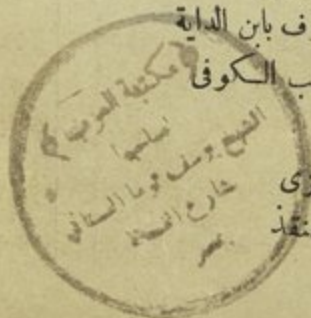 وف بابن الداية
ب الكوفى
مكتبة العرب
لصاحبها
الشيخ يوسف توما البستانى
شارع الفجالة
بمصر
زى
نقذ